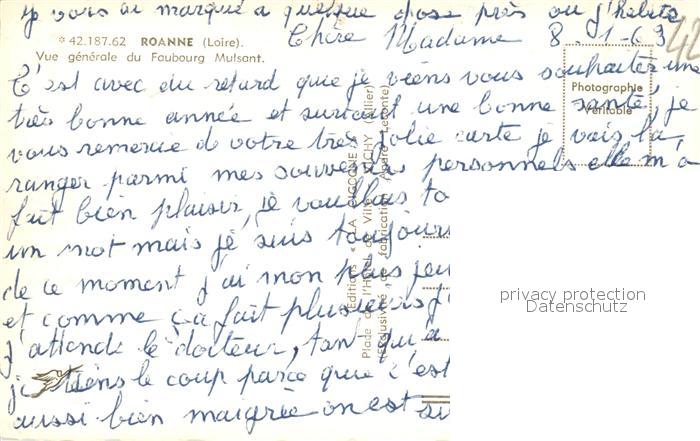 je vous ai marqué a quelque chose près ou j'habite
* 42.187.62 ROANNE (Loire).
Vue générale du Faubourg Mulsant.
Chère Madame 8-1-63
42
C'est avec du retard que je viens vous souhaiter une
très bonne année et surtout une bonne santé, je
vous remercie de votre très jolie carte je vais la
ranger parmi mes souvenirs personnels elle m'a
fait bien plaisir, je voulais to
un mot mais je suis toujours
de ce moment j'ai mon plus jeu
et comme ça fait plusieurs f
j'attends le docteur, tant qu'a
je tiens le coup parce que c'est
aussi bien maigrie on est su
Photographie
Véritable
Editions « LA CIGOGNE »
Place de l'Hôtel de Ville - VICHY (Allier)
(Exclusivité de fabrication André Leconte)
privacy protection
Datenschutz